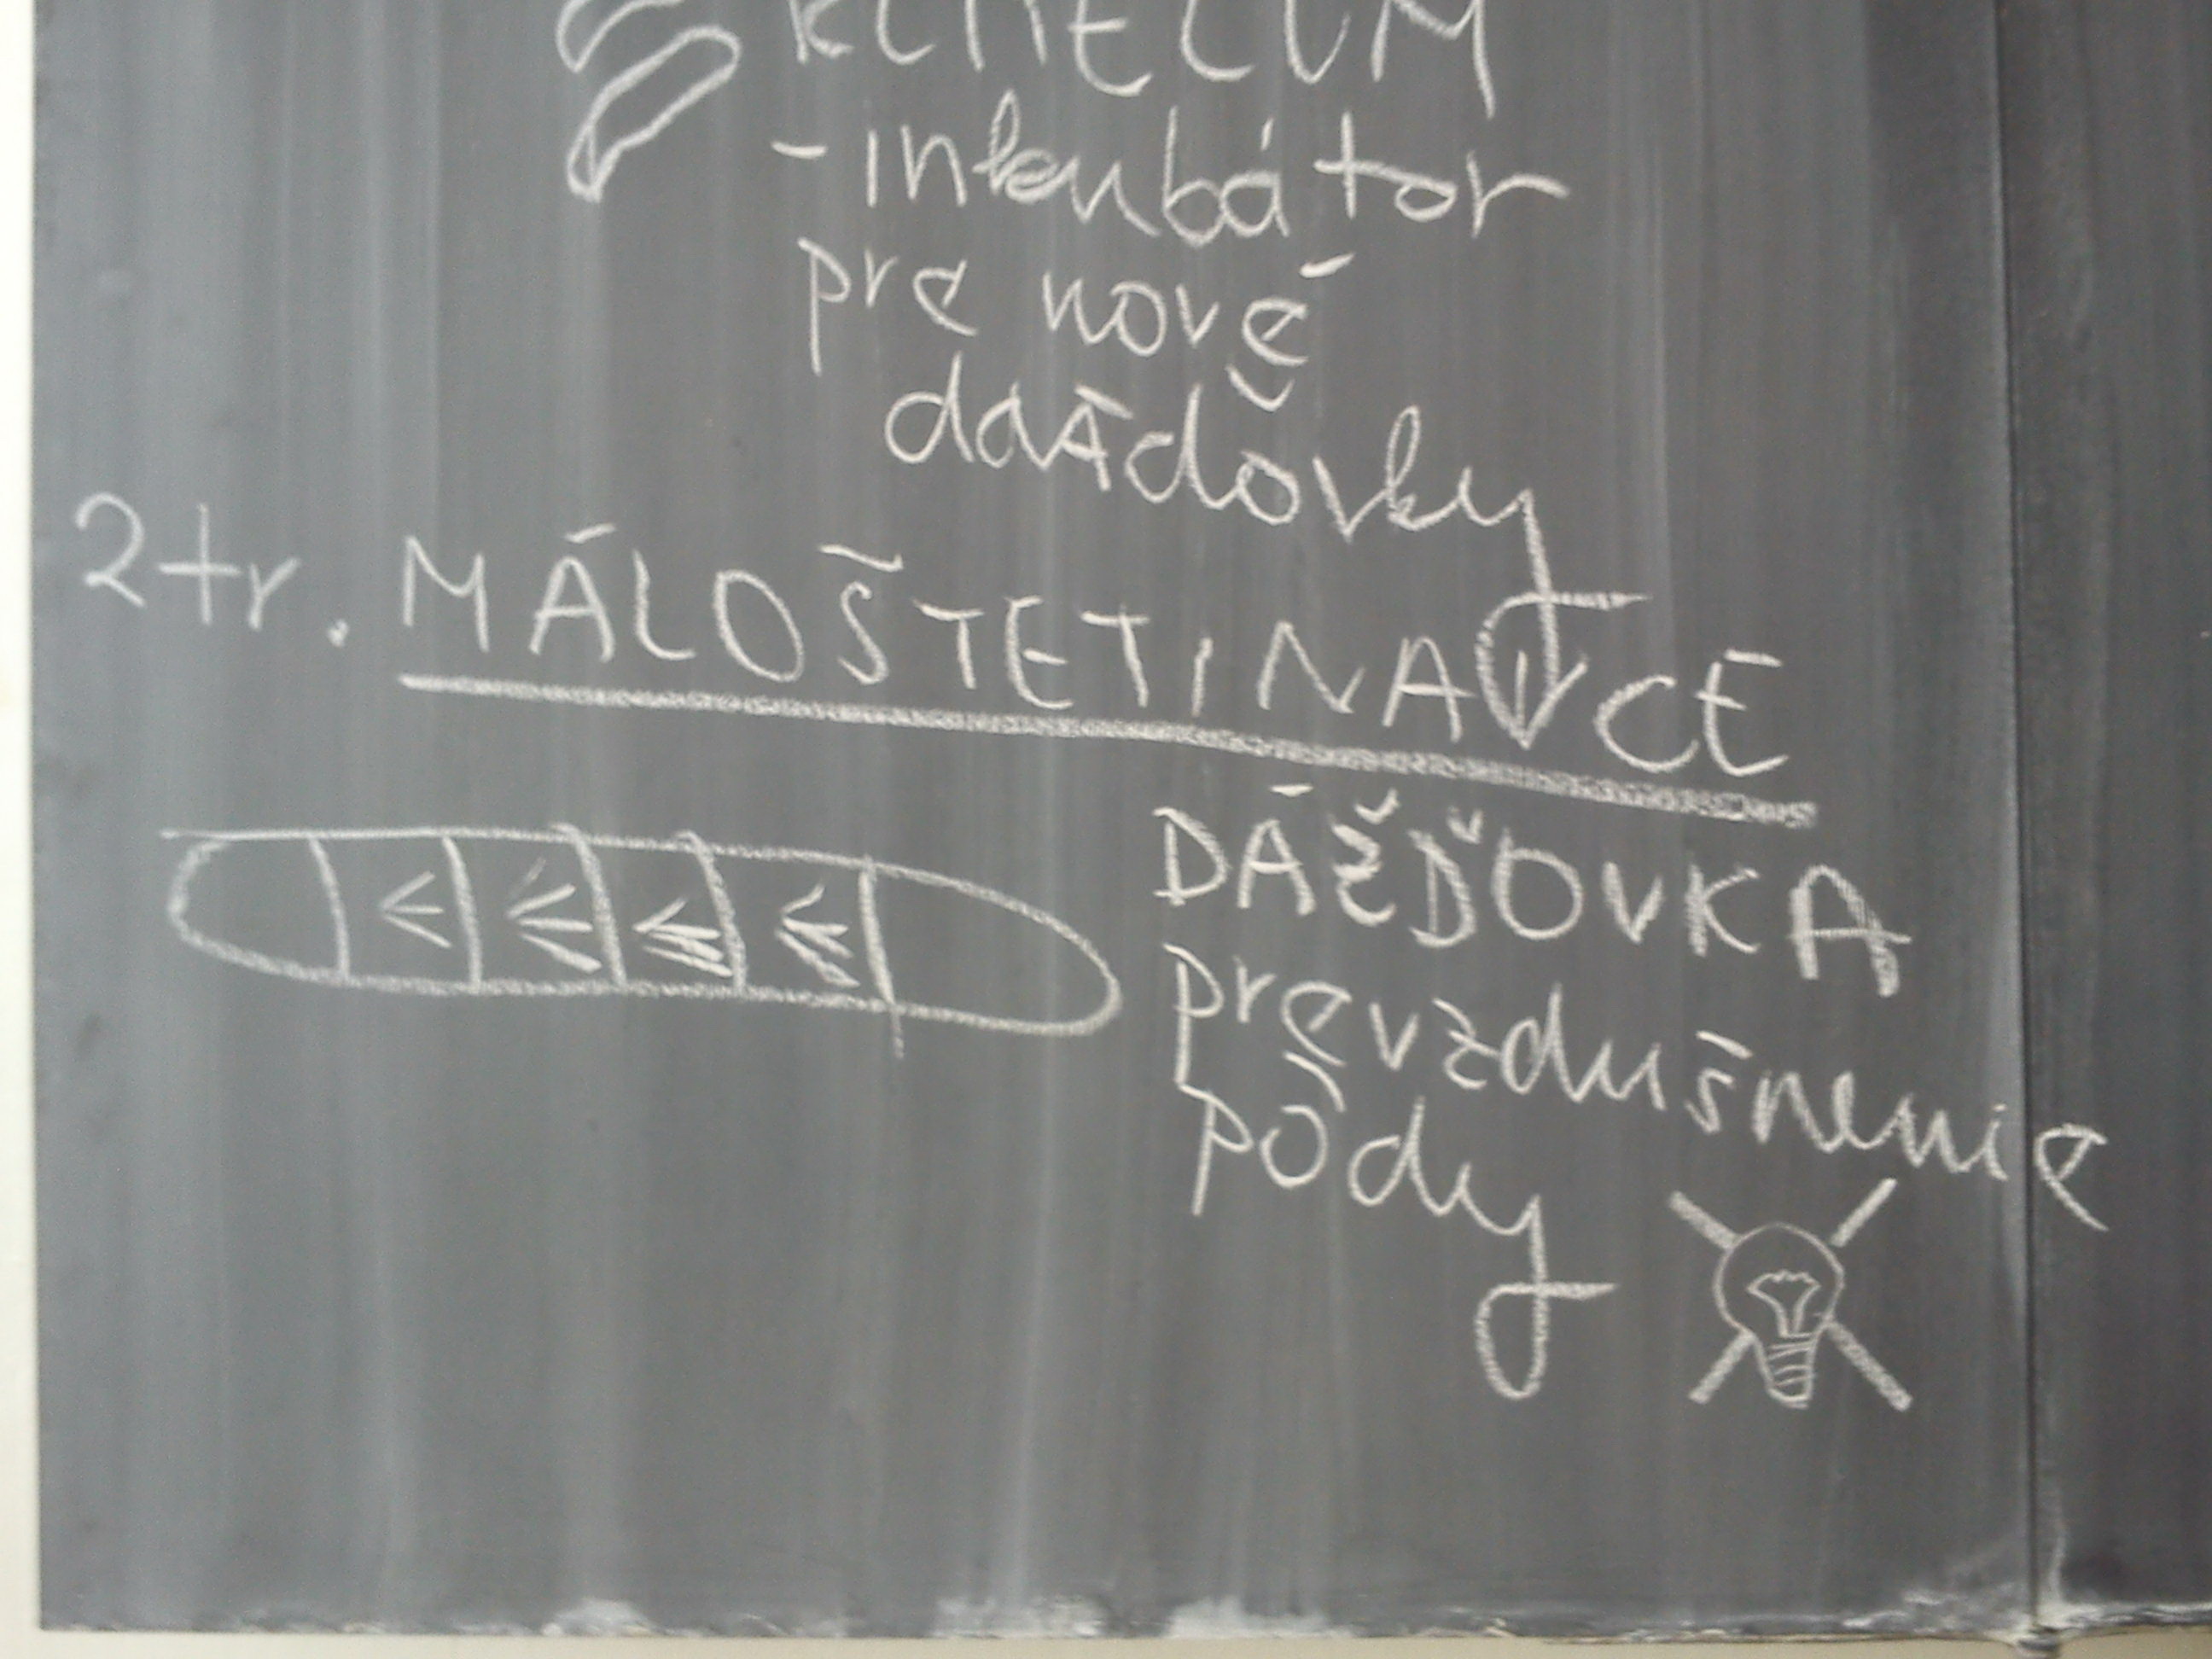 KLITELUM
-inkubátor
pre nové
dažďovky
2 tr. MÁLOŠTETINAVCE
DÁŽĎOVKA
prevzdušnenie
pôdy